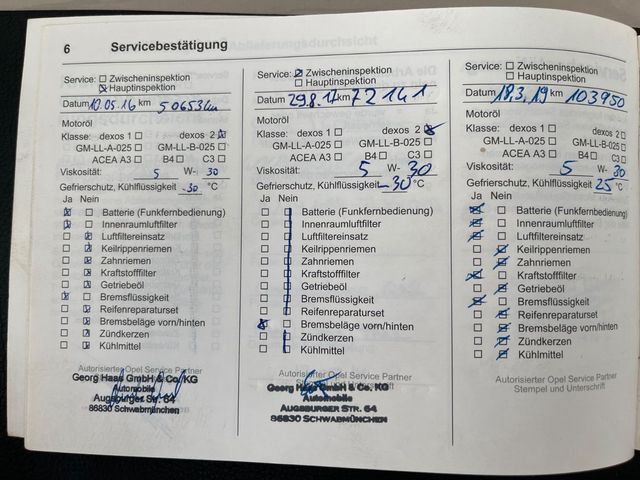 6 Servicebestätigung
Service: ☐ Zwischeninspektion
☒ Hauptinspektion
Datum 10.05.16 km 50653km
Motoröl
Klasse: dexos 1 ☐ dexos 2 ☒
GM-LL-A-025 ☐ GM-LL-B-025 ☐
ACEA A3 ☐ B4 ☐ C3 ☐
Viskosität: 5 W- 30
Gefrierschutz, Kühlflüssigkeit -30 °C
Ja Nein
☒ ☐ Batterie (Funkfernbedienung)
☒ ☐ Innenraumluftfilter
☐ ☒ Luftfiltereinsatz
☐ ☒ Keilrippenriemen
☐ ☒ Zahnriemen
☐ ☒ Kraftstofffilter
☐ ☒ Getriebeöl
☒ ☐ Bremsflüssigkeit
☐ ☒ Reifenreparaturset
☐ ☒ Bremsbeläge vorn/hinten
☐ ☒ Zündkerzen
☐ ☒ Kühlmittel
Autorisierter Opel Service Partner
Georg Haas GmbH & Co. KG
Automobile
Augsburger Str. 64
86830 Schwabmünchen
Service: ☒ Zwischeninspektion
☐ Hauptinspektion
Datum 29.8.17 km 72141
Motoröl
Klasse: dexos 1 ☐ dexos 2 ☒
GM-LL-A-025 ☐ GM-LL-B-025 ☐
ACEA A3 ☐ B4 ☐ C3 ☐
Viskosität: 5 W- 30
Gefrierschutz, Kühlflüssigkeit -30 °C
Ja Nein
☐ ☐ Batterie (Funkfernbedienung)
☐ ☐ Innenraumluftfilter
☐ ☐ Luftfiltereinsatz
☐ ☐ Keilrippenriemen
☐ ☐ Zahnriemen
☐ ☐ Kraftstofffilter
☐ ☐ Getriebeöl
☐ ☐ Bremsflüssigkeit
☐ ☐ Reifenreparaturset
☒ ☐ Bremsbeläge vorn/hinten
☐ ☐ Zündkerzen
☐ ☐ Kühlmittel
Autorisierter Opel Service Partner
Georg Haas GmbH & Co. KG
Automobile
Augsburger Str. 64
86830 Schwabmünchen
Service: ☐ Zwischeninspektion
☐ Hauptinspektion
Datum 18.3.19 km 103950
Motoröl
Klasse: dexos 1 ☐ dexos 2 ☐
GM-LL-A-025 ☐ GM-LL-B-025 ☐
ACEA A3 ☐ B4 ☐ C3 ☐
Viskosität: 5 W- 30
Gefrierschutz, Kühlflüssigkeit 25 °C
Ja Nein
☒ ☐ Batterie (Funkfernbedienung)
☒ ☐ Innenraumluftfilter
☒ ☐ Luftfiltereinsatz
☐ ☒ Keilrippenriemen
☐ ☒ Zahnriemen
☒ ☐ Kraftstofffilter
☐ ☒ Getriebeöl
☒ ☐ Bremsflüssigkeit
☐ ☒ Reifenreparaturset
☐ ☒ Bremsbeläge vorn/hinten
☐ ☒ Zündkerzen
☐ ☒ Kühlmittel
Autorisierter Opel Service Partner
Stempel und Unterschrift